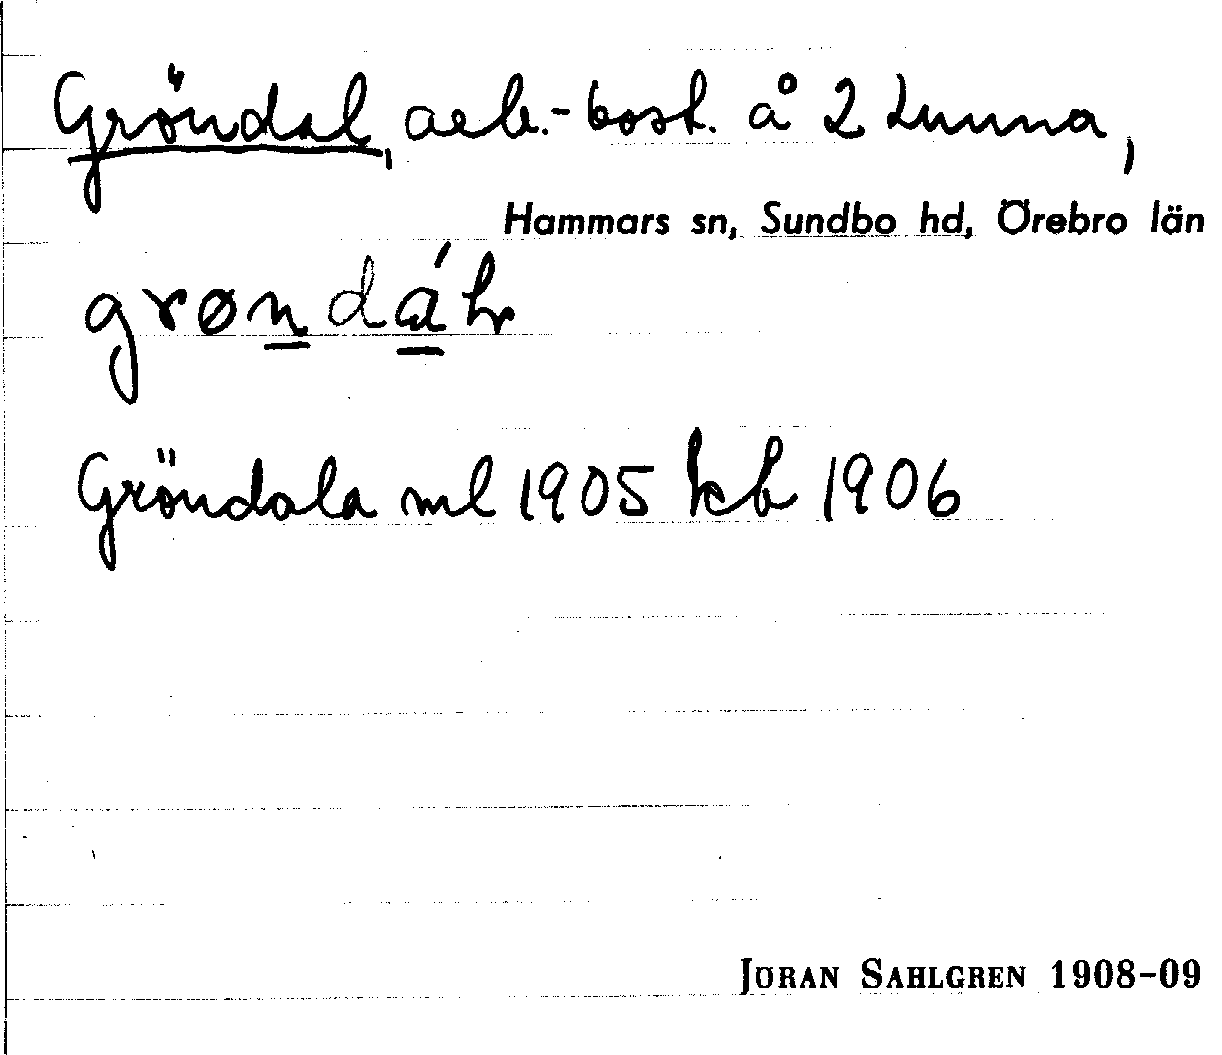 Gröndal, arb.-bost. å 2 Lunna,
Hammars sn, Sundbo hd, Örebro län
grøndáls
Gröndala ml 1905 kb 1906
JÖRAN SAHLGREN 1908-09